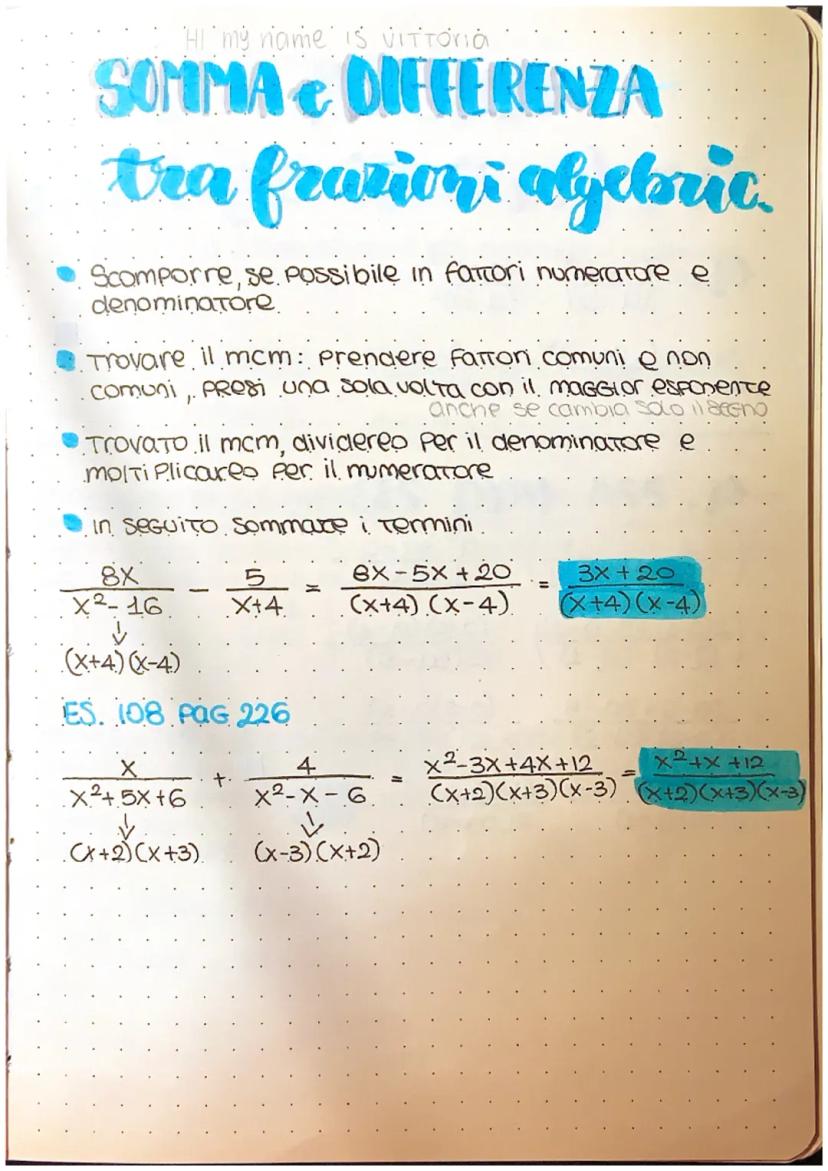 HI my name is VITTORIA
SOMMA e DIFFERENZA
tra frazioni algebric.
Scomporre, se possibile in fattori numeratore e
denominatore
Trovare il mcm: prendere fattori comuni e non
comuni, presi una sola volta con il maggior esponente
anche se cambia solo il segno
Trovato il mcm, dividereo per il denominatore e
moltiplicareo per il numeratore
in seguito sommare i termini
8x / x²-16 - 5 / x+4 = 8x-5x+20 / (x+4)(x-4) = 3x+20 / (x+4)(x-4)
↓
(x+4)(x-4)
ES. 108 PAG 226
x / x²+5x+6 + 4 / x²-x-6 = x²-3x+4x+12 / (x+2)(x+3)(x-3) = x²+x+12 / (x+2)(x+3)(x-3)
↓ ↓
(x+2)(x+3) (x-3)(x+2)